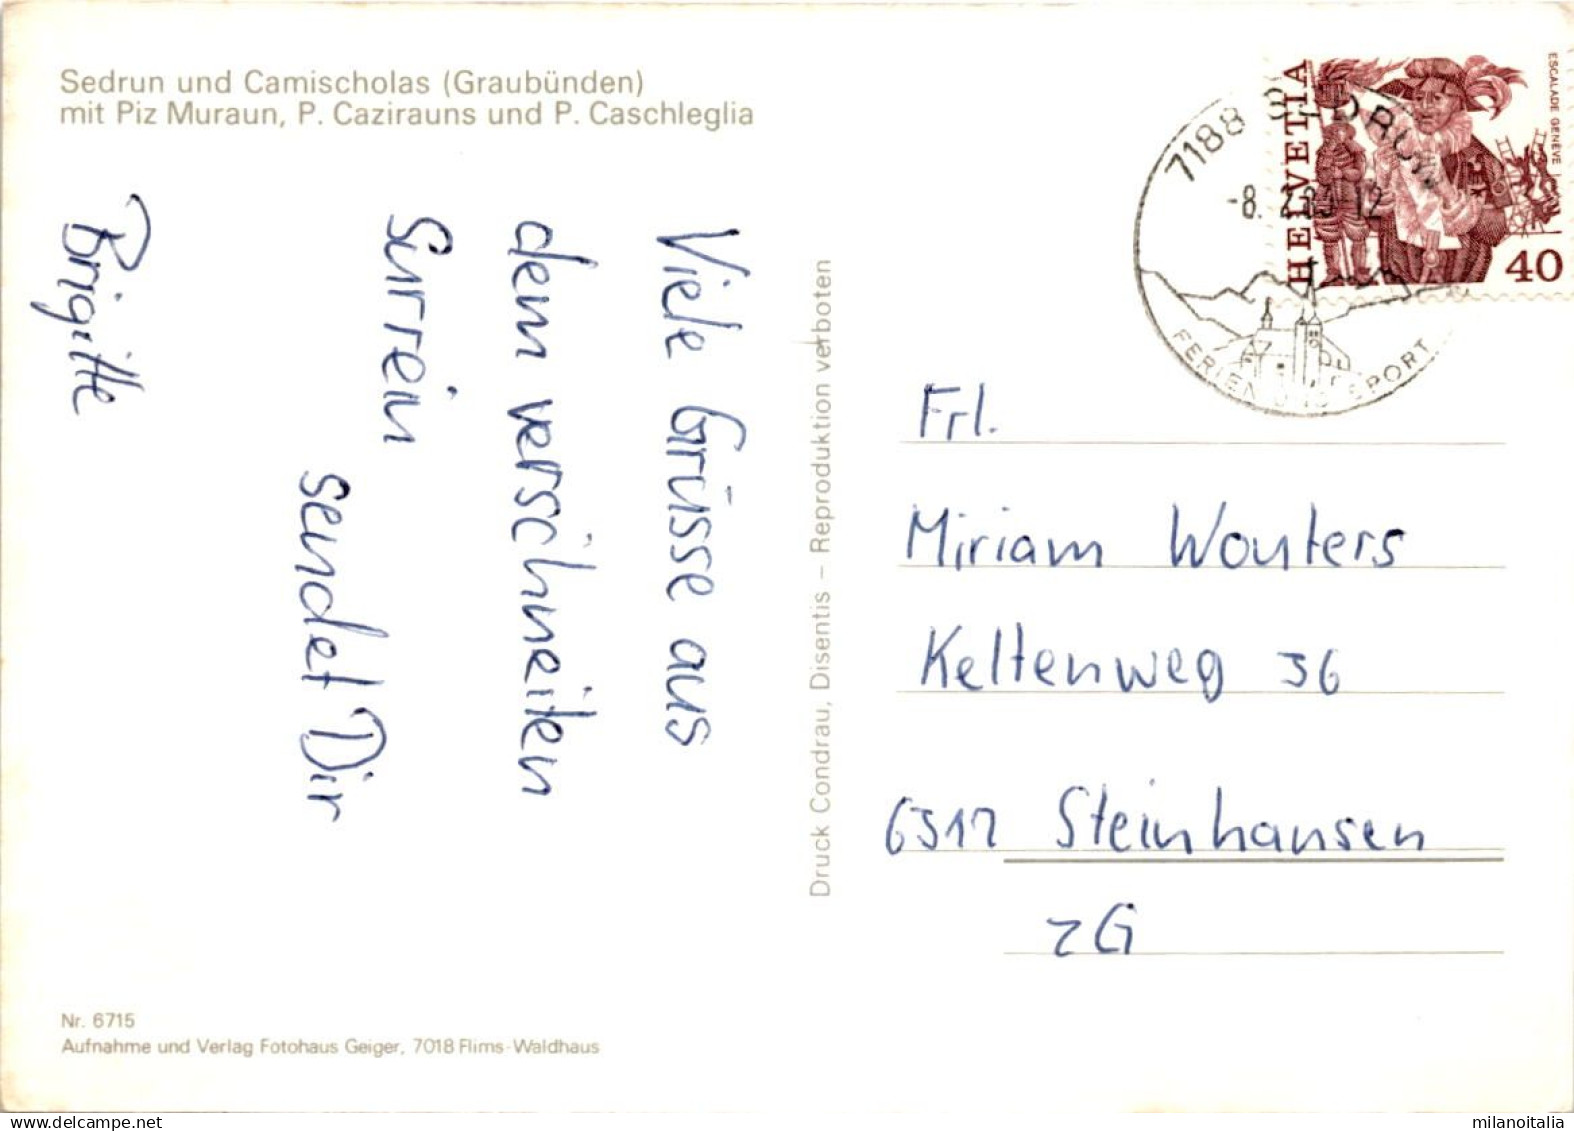 Sedrun und Camischolas (Graubünden)
mit Piz Muraun, P. Cazirauns und P. Caschleglia
Viele Grüsse aus
dem verschneiten
Surrein
sendet Dir
Brigitte
Druck Condrau, Disentis – Reproduktion verboten
HELVETIA
ESCALADE GENÈVE
40
7188 SEDRUN
FERIEN UND SPORT
Frl.
Miriam Wouters
Keltenweg 36
6312 Steinhausen
ZG
Nr. 6715
Aufnahme und Verlag Fotohaus Geiger, 7018 Flims-Waldhaus
www.delcampe.net
milanoitalia